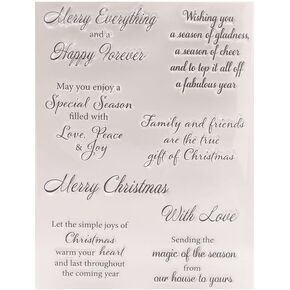 Merry Everything
and a
Happy Forever
Wishing you
a season of gladness,
a season of cheer
and to top it all off
a fabulous year
May you enjoy a
Special Season
filled with
Love, Peace
& Joy
Family and friends
are the true
gift of Christmas
Merry Christmas
Let the simple joys of
Christmas
warm your heart
and last throughout
the coming year
With Love
Sending the
magic of the season
from
our house to yours